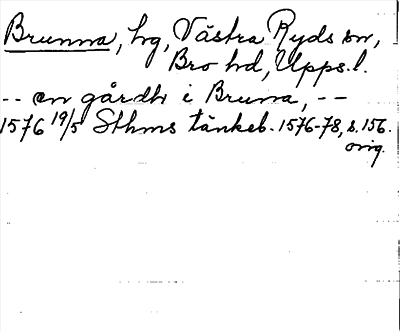 Brunna, hg, Västra Ryds sn,
Bro hd, Upps.l.
-- en gårdh i Bruna, --
1576 19/5 Sthms tänkeb. 1576-78, s. 156.
orig.